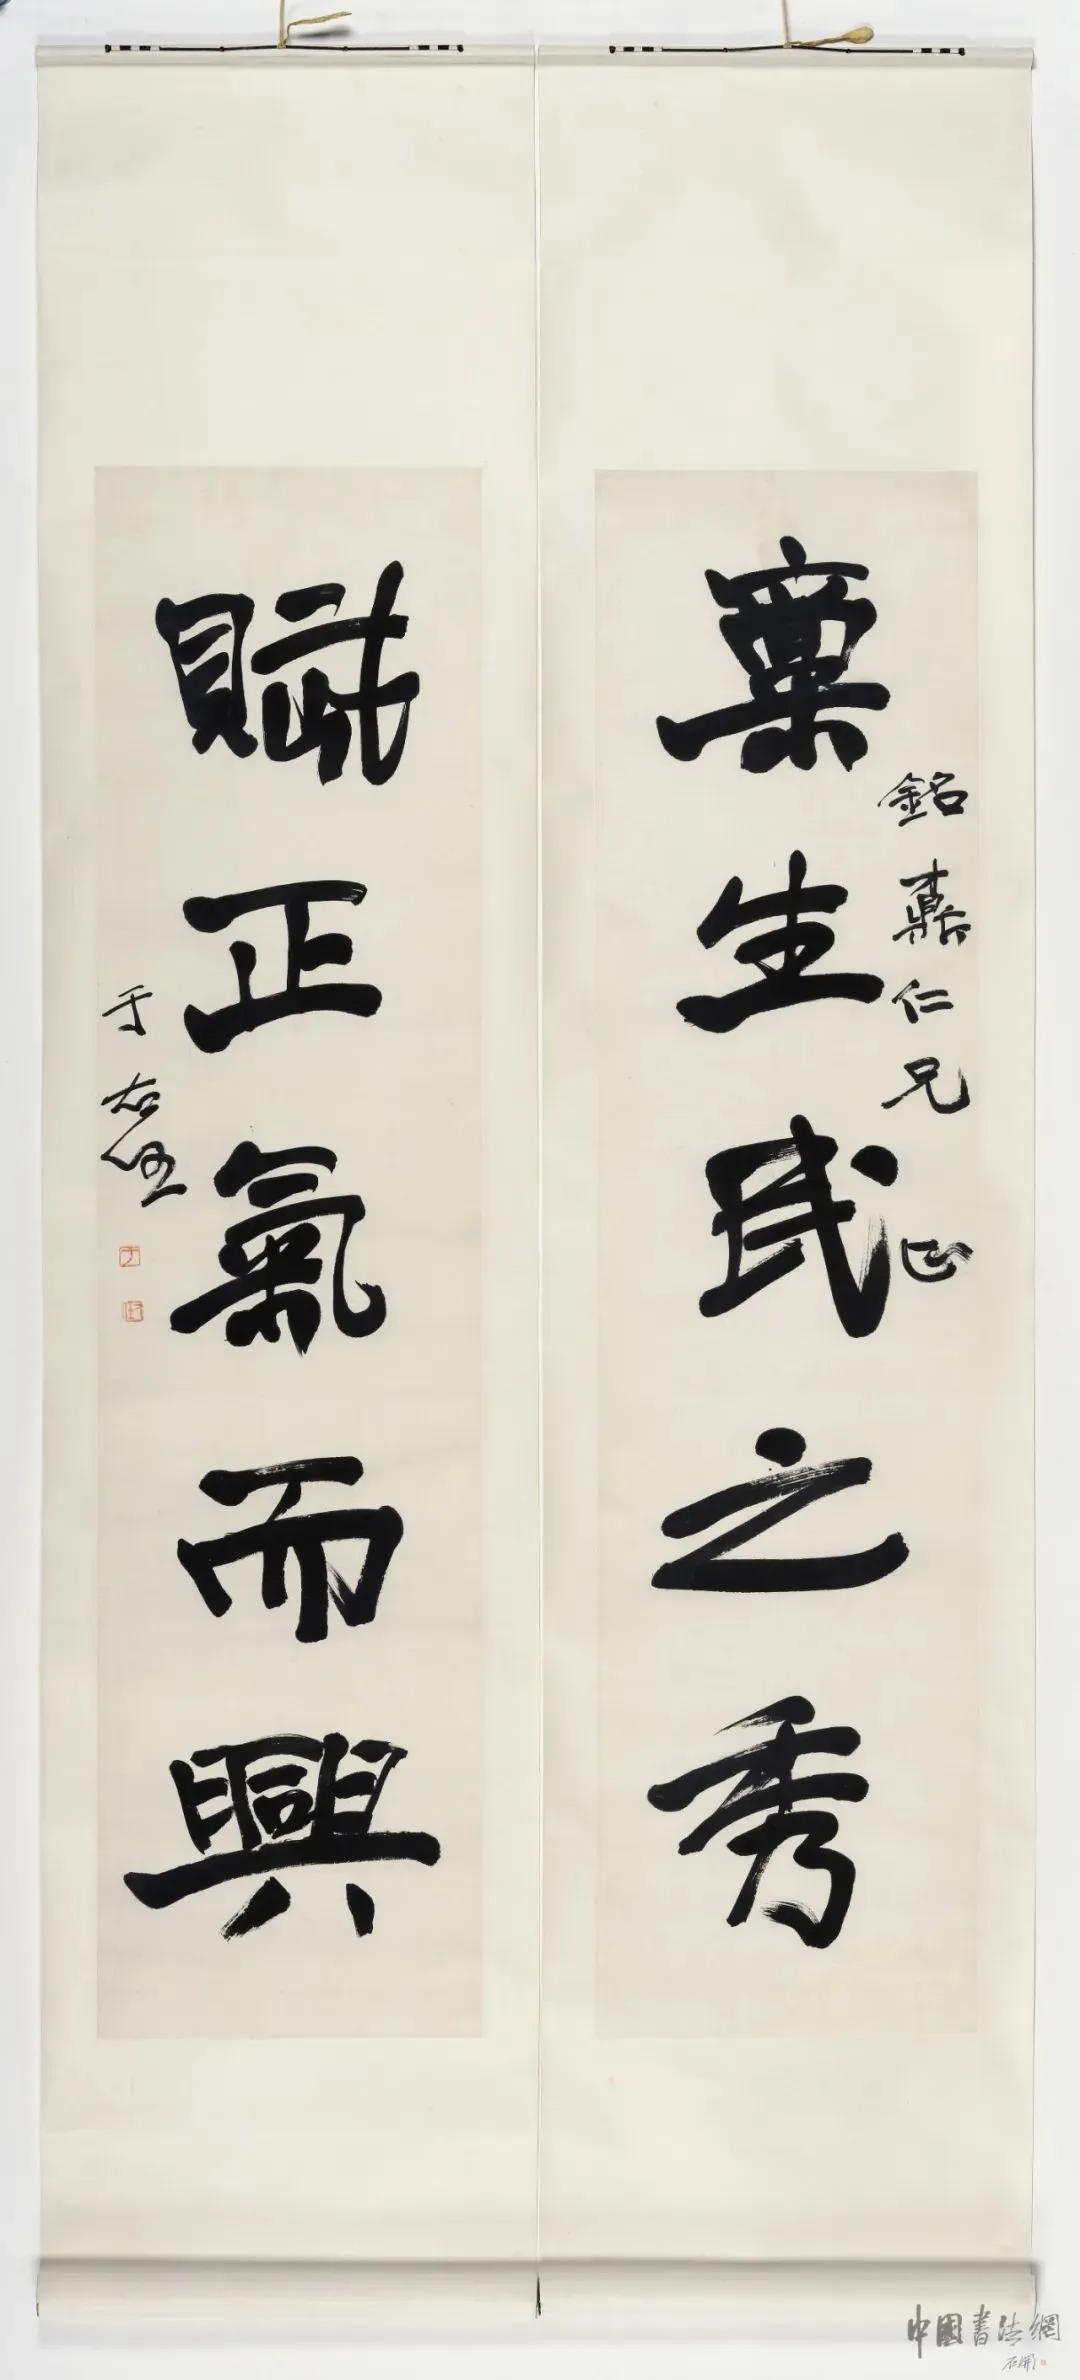 稟生民之秀
銘鼒仁兄正
賦正氣而興
于右任
中國書法網
石開